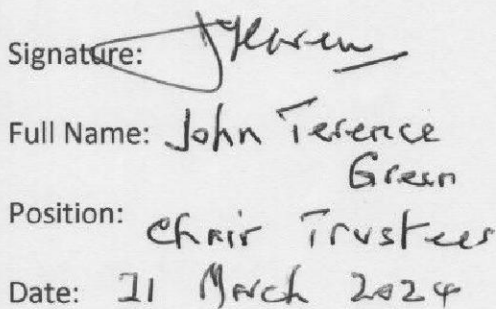 Signature:
Full Name: John Terence
Green
Position: Chair Trustees
Date: 21 March 2024